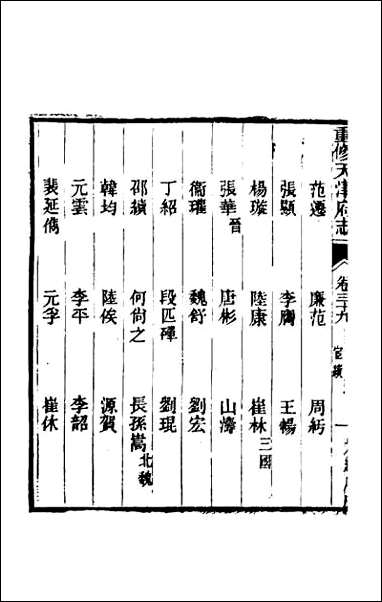 重修天津府志 卷三十六 宦績 一
范遷 廉范 周紆
張顯 李膺 王暢
楊璇 陸康 崔林 三國
張華 晉 唐彬 山濤
衞瓘 魏舒 劉宏
丁紹 段匹磾 劉琨
邵續 何尙之 長孫嵩 北魏
韓均 陸俟 源賀
元雲 李平 李韶
裴延儁 元孚 崔休